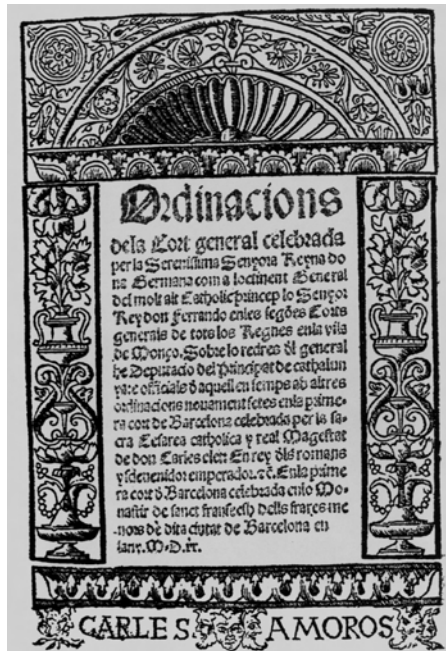 Ordinacions
dela Cort general celebrada
per la Serenissima Senyora Reyna do
na Germana com a loctinent General
del molt alt Catholic princep lo Senyor
Rey don Ferrando enles segões Corts
generals de tots los Regnes enla vila
de Monço. Sobre lo redres ðl general
he Deputacio del principat de cathalun
ya: e officials ð aquell en semps ab altres
ordinacions nouament fetes enla prime
ra cort de Barcelona celebrada per la sa
cra Cesarea catholica y real Magestat
de don Carles elet En rey ðls romans
y sdeuenidor emperador. ⁊c̃. Enla prime
ra cort ð Barcelona celebrada enlo Mo-
nastir de sanct francesch dells frares me
nors de dita ciutat de Barcelona en
lany. M.D.
CARLES AMOROS